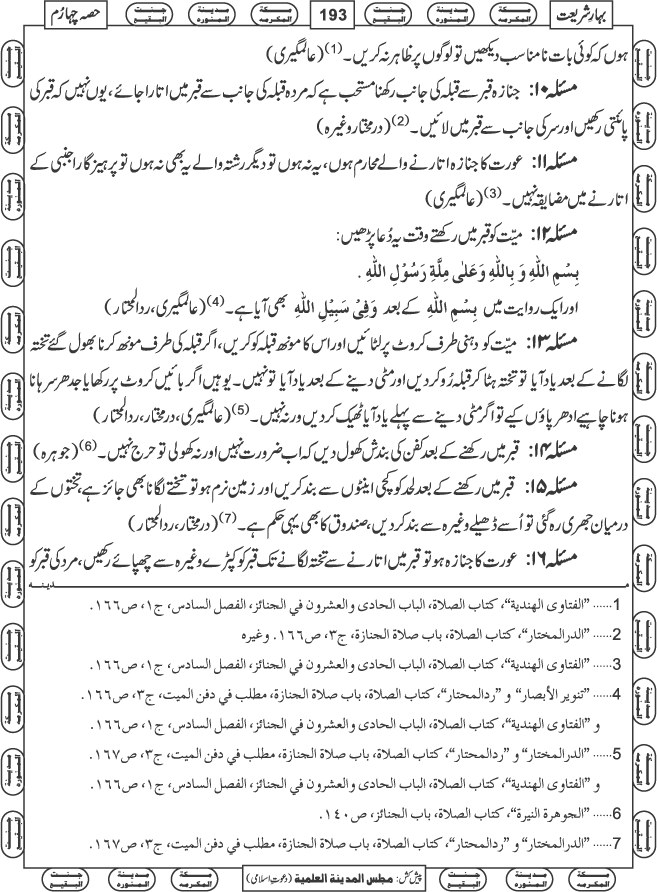 بہارِ شریعت
مکۃ المکرمہ
مدینۃ المنورہ
جنت البقیع
193
مکۃ المکرمہ
مدینۃ المنورہ
جنت البقیع
حصہ چہارم
ہوں کہ کوئی بات نامناسب دیکھیں تو لوگوں پر ظاہر نہ کریں۔(1) (عالمگیری)
مسئلہ ۱۰: جنازہ قبر سے قبلہ کی جانب رکھنا مستحب ہے کہ مردہ قبلہ کی جانب سے قبر میں اتارا جائے، یوں نہیں کہ قبر کی
پائنتی رکھیں اور سر کی جانب سے قبر میں لائیں۔(2) (درمختار وغیرہ)
مسئلہ ۱۱: عورت کا جنازہ اتارنے والے محارم ہوں، یہ نہ ہوں تو دیگر رشتہ والے یہ بھی نہ ہوں تو پرہیزگار اجنبی کے
اتارنے میں مضایقہ نہیں۔(3) (عالمگیری)
مسئلہ ۱۲: میّت کو قبر میں رکھتے وقت یہ دُعا پڑھیں:
بِسْمِ اللهِ وَ بِاللهِ وَعَلٰی مِلَّةِ رَسُوْلِ اللهِ .
اور ایک روایت میں بِسْمِ اللهِ کے بعد وَفِیْ سَبِيْلِ اللهِ بھی آیا ہے۔(4) (عالمگیری، ردالمحتار)
مسئلہ ۱۳: میّت کو دہنی طرف کروٹ پر لٹائیں اور اس کا مونھ قبلہ کو کریں، اگر قبلہ کی طرف مونھ کرنا بھول گئے تختہ
لگانے کے بعد یاد آیا تو تختہ ہٹا کر قبلہ رُو کردیں اور مٹی دینے کے بعد یاد آیا تو نہیں۔ یوہیں اگر بائیں کروٹ پر رکھا یا جدھر سرہانا
ہونا چاہیے ادھر پاؤں کیے تو اگر مٹی دینے سے پہلے یاد آیا ٹھیک کردیں ورنہ نہیں۔(5) (عالمگیری، درمختار، ردالمحتار)
مسئلہ ۱۴: قبر میں رکھنے کے بعد کفن کی بندش کھول دیں کہ اب ضرورت نہیں اور نہ کھولی تو حرج نہیں۔(6) (جوہرہ)
مسئلہ ۱۵: قبر میں رکھنے کے بعد لحد کو کچی اینٹوں سے بند کریں اور زمین نرم ہو تو تختے لگانا بھی جائز ہے، تختوں کے
درمیان جھری رہ گئی تو اُسے ڈھیلے وغیرہ سے بند کردیں، صندوق کا بھی یہی حکم ہے۔(7) (درمختار، ردالمحتار)
مسئلہ ۱۶: عورت کا جنازہ ہو تو قبر میں اتارنے سے تختہ لگانے تک قبر کو کپڑے وغیرہ سے چھپائے رکھیں، مرد کی قبر کو
مدینہ
1...... ”الفتاوی الھندیة“، کتاب الصلاة، الباب الحادی والعشرون فی الجنائز، الفصل السادس، ج١، ص١٦٦.
2...... ”الدرالمختار“، کتاب الصلاة، باب صلاة الجنازة، ج٣، ص١٦٦. وغیرہ
3...... ”الفتاوی الھندیة“، کتاب الصلاة، الباب الحادی والعشرون فی الجنائز، الفصل السادس، ج١، ص١٦٦.
4...... ”تنویر الأبصار“ و ”ردالمحتار“، کتاب الصلاة، باب صلاة الجنازة، مطلب فی دفن المیت، ج٣، ص١٦٦.
و ”الفتاوی الھندیة“، کتاب الصلاة، الباب الحادی والعشرون فی الجنائز، الفصل السادس، ج١، ص١٦٦.
5...... ”الدرالمختار“ و ”ردالمحتار“، کتاب الصلاة، باب صلاة الجنازة، مطلب فی دفن المیت، ج٣، ص١٦٧.
و ”الفتاوی الھندیة“، کتاب الصلاة، الباب الحادی والعشرون فی الجنائز، الفصل السادس، ج١، ص١٦٦.
6...... ”الجوھرة النیرة“، کتاب الصلاة، باب الجنائز، ص١٤٠.
7...... ”الدرالمختار“ و ”ردالمحتار“، کتاب الصلاة، باب صلاة الجنازة، مطلب فی دفن المیت، ج٣، ص١٦٧.
مکۃ المکرمہ
مدینۃ المنورہ
جنت البقیع
پیش کش: مجلس المدینة العلمیة (دعوتِ اسلامی)
مکۃ المکرمہ
مدینۃ المنورہ
جنت البقیع